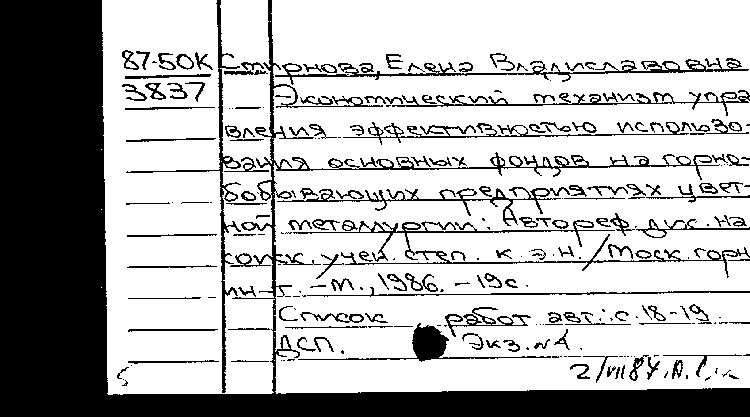 87-50К Смирнова, Елена Владиславовна
3837 Экономический механизм упра-
вления эффективностью использо-
вания основных фондов на горно-
бобывающих предприятиях цвет-
ной металлургии: Автореф. дис. на
соиск. учен. степ. к. э. н. / Моск. горн.
ин-т. - М., 1986. - 19 с.
Список работ авт.: с. 18-19.
ДСП. Экз. N 1.